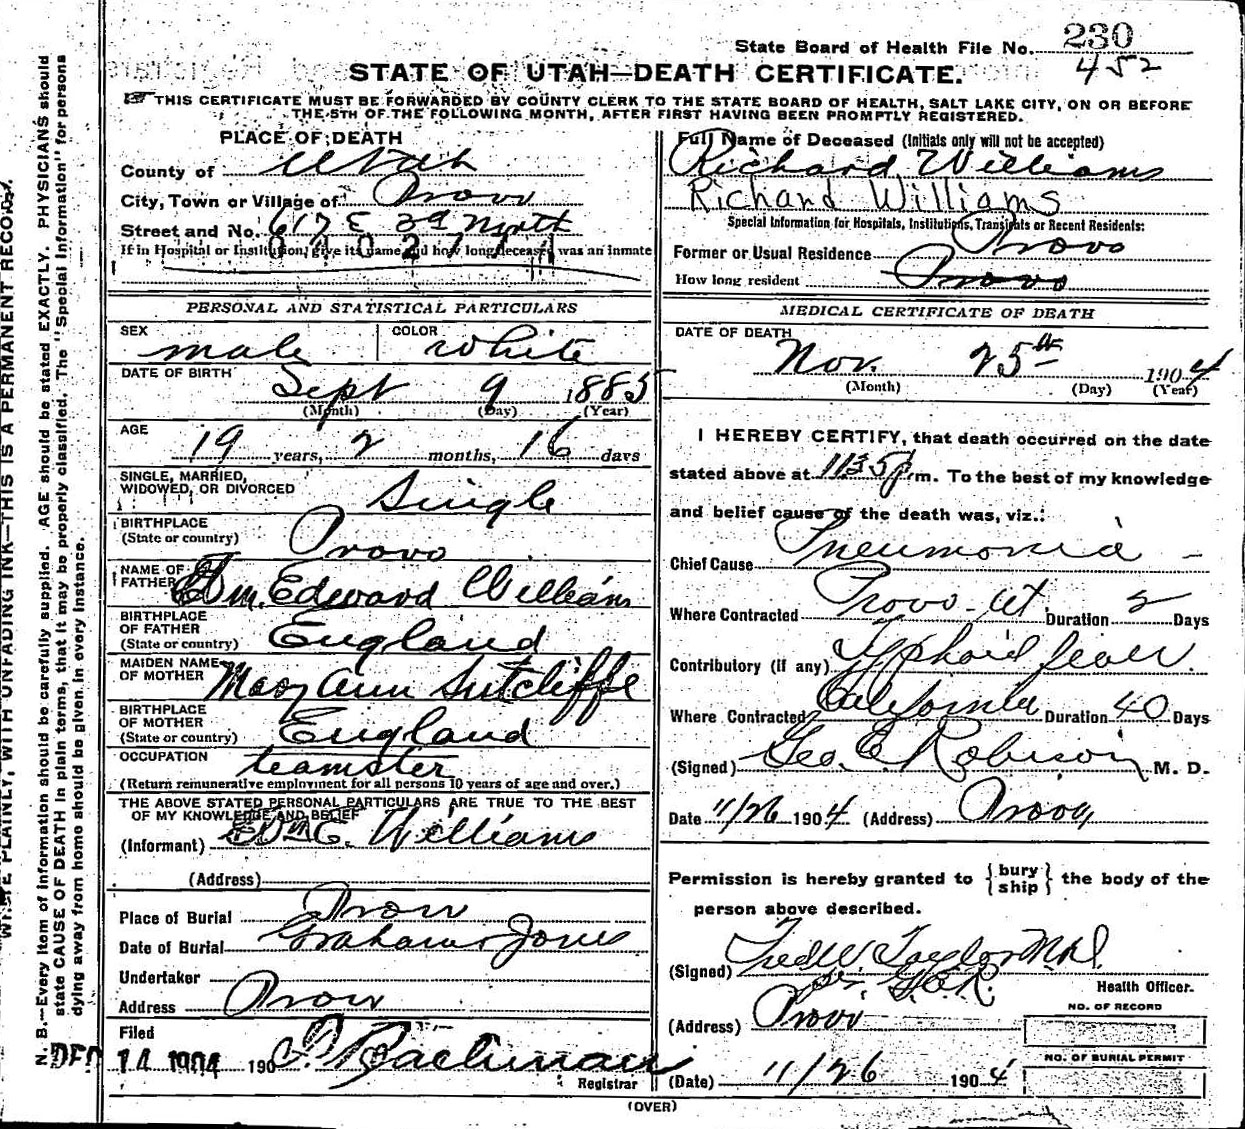 State Board of Health File No. 230
452
STATE OF UTAH—DEATH CERTIFICATE.
THIS CERTIFICATE MUST BE FORWARDED BY COUNTY CLERK TO THE STATE BOARD OF HEALTH, SALT LAKE CITY, ON OR BEFORE
THE 5TH OF THE FOLLOWING MONTH, AFTER FIRST HAVING BEEN PROMPTLY REGISTERED.
PLACE OF DEATH
County of Utah
City, Town or Village of Provo
Street and No. 617 E 2d North
If in Hospital or Institution, give its name and how long deceased was an inmate
PERSONAL AND STATISTICAL PARTICULARS
SEX male COLOR White
DATE OF BIRTH Sept 9 1885
(Month) (Day) (Year)
AGE 19 years, 2 months, 16 days
SINGLE, MARRIED,
WIDOWED, OR DIVORCED Single
BIRTHPLACE
(State or country) Provo
NAME OF
FATHER Wm. Edward William
BIRTHPLACE
OF FATHER
(State or country) England
MAIDEN NAME
OF MOTHER Mary Ann Sutcliffe
BIRTHPLACE
OF MOTHER
(State or country) England
OCCUPATION teamster
(Return remunerative employment for all persons 10 years of age and over.)
THE ABOVE STATED PERSONAL PARTICULARS ARE TRUE TO THE BEST
OF MY KNOWLEDGE AND BELIEF
(Informant) Williams
(Address)
Place of Burial Provo
Date of Burial Graham Jones
Undertaker
Address Provo
Filed
DEC 14 1904 190
Registrar
Full Name of Deceased (Initials only will not be accepted)
Richard Williams
Richard Williams
Special Information for Hospitals, Institutions, Transients or Recent Residents:
Former or Usual Residence Provo
How long resident Provo
MEDICAL CERTIFICATE OF DEATH
DATE OF DEATH
Nov. 25th 1904
(Month) (Day) (Year)
I HEREBY CERTIFY, that death occurred on the date
stated above at 1135 p m. To the best of my knowledge
and belief cause of the death was, viz.:
Chief Cause Pneumonia
Where Contracted Provo - Ut Duration 2 Days
Contributory (if any) Typhoid fever.
Where Contracted California Duration 40 Days
(Signed) Geo. E. Robison M. D.
Date 11/26 1904 (Address) Provo
Permission is hereby granted to bury ship the body of the
person above described.
(Signed) Fred W Taylor M.D.
Health Officer.
(Address) Provo
NO. OF RECORD
NO. OF BURIAL PERMIT
(Date) 11/26 1904
(OVER)
WRITE PLAINLY, WITH UNFADING INK—THIS IS A PERMANENT RECORD.
N. B.—Every item of information should be carefully supplied. AGE should be stated EXACTLY. PHYSICIANS should
state CAUSE OF DEATH in plain terms, that it may be properly classified. The "Special Information" for persons
dying away from home should be given in every instance.